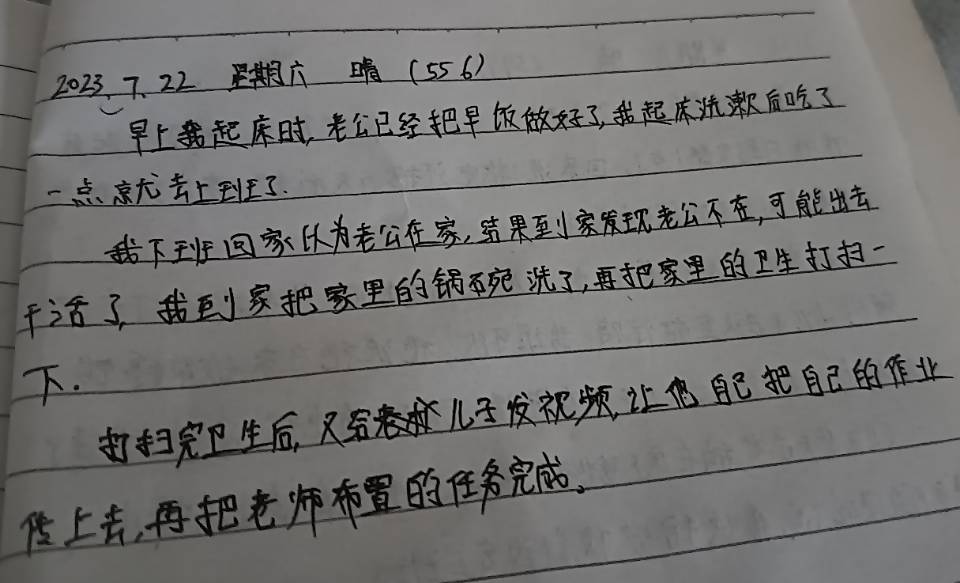 2023.7.22 星期六 晴 (556)
早上我起床时,老公已经把早饭做好了,我起床洗漱后吃了
一点就去上班了.
我下班回家以为老公在家,结果到家发现老公不在,可能出去
干活了,我到家把家里的锅碗洗了,再把家里的卫生打扫一
下.
打扫完卫生后,又给儿子发视频,让他自己把自己的作业
传上去,再把老师布置的任务完成。